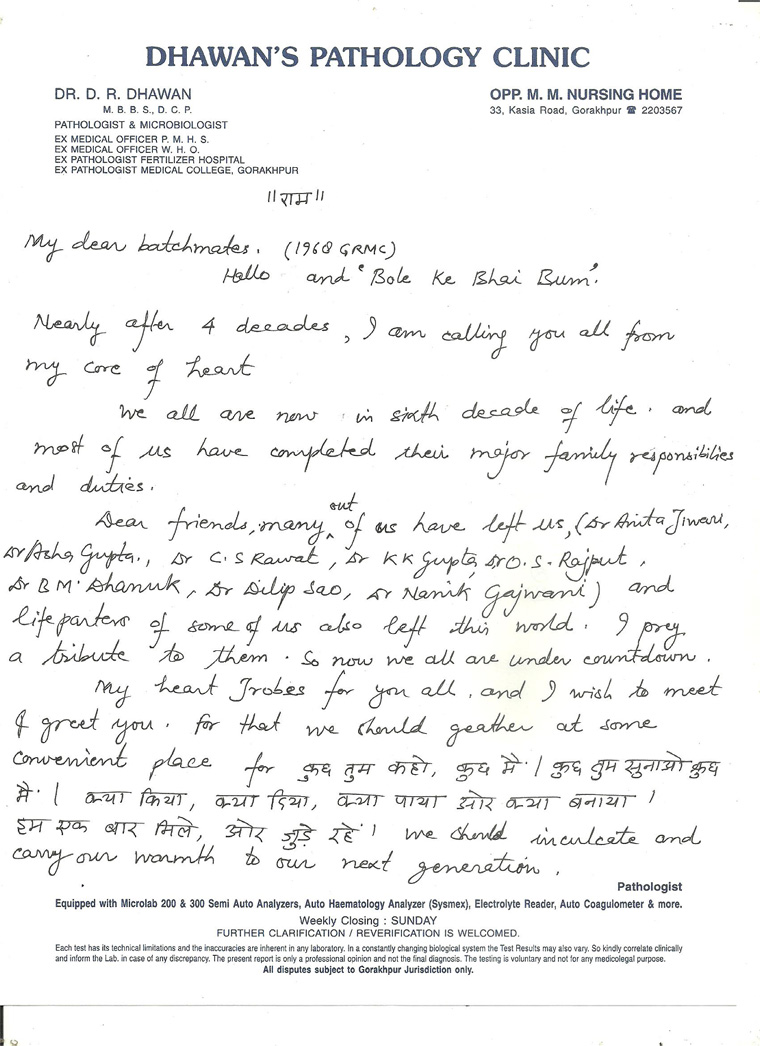 DHAWAN'S PATHOLOGY CLINIC
DR. D. R. DHAWAN
M. B. B. S., D. C. P.
PATHOLOGIST & MICROBIOLOGIST
EX MEDICAL OFFICER P. M. H. S.
EX MEDICAL OFFICER W. H. O.
EX PATHOLOGIST FERTILIZER HOSPITAL
EX PATHOLOGIST MEDICAL COLLEGE, GORAKHPUR
OPP. M. M. NURSING HOME
33, Kasia Road, Gorakhpur ☎ 2203567
॥राम॥
My dear batchmates. (1968 GRMC)
Hello and 'Bole Ke Bhai Bum'.
Nearly after 4 decades, I am calling you all from
my core of heart
We all are now in sixth decade of life. and
most of us have completed their major family responsibilies
and duties.
Dear friends, many out of us have left us, (Dr Anita Tiwari,
Dr Asha Gupta., Dr C.S Rawat, Dr K K Gupta, Dr O.S. Rajput,
Dr B M. Dhanuk, Dr Dilip Sao, Dr Nanik Gajwani) and
life parters of some of us also left this world. I prey
a tribute to them. So now we all are under countdown.
My heart Trobes for you all. and I wish to meet
& greet you. for that we should geather at some
convenient place for कुछ तुम कहो, कुछ मै। कुछ तुम सुनाओ कुछ
मै। क्या किया, क्या दिया, क्या पाया ओर क्या बनाया।
हम एक बार मिले, ओर जुड़े रहें। we should inculcate and
carry our warmth to our next generation.
Pathologist
Equipped with Microlab 200 & 300 Semi Auto Analyzers, Auto Haematology Analyzer (Sysmex), Electrolyte Reader, Auto Coagulometer & more.
Weekly Closing : SUNDAY
FURTHER CLARIFICATION / REVERIFICATION IS WELCOMED.
Each test has its technical limitations and the inaccuracies are inherent in any laboratory. In a constantly changing biological system the Test Results may also vary. So kindly correlate clinically
and inform the Lab. in case of any discrepancy. The present report is only a professional opinion and not the final diagnosis. The testing is voluntary and not for any medicolegal purpose.
All disputes subject to Gorakhpur Jurisdiction only.